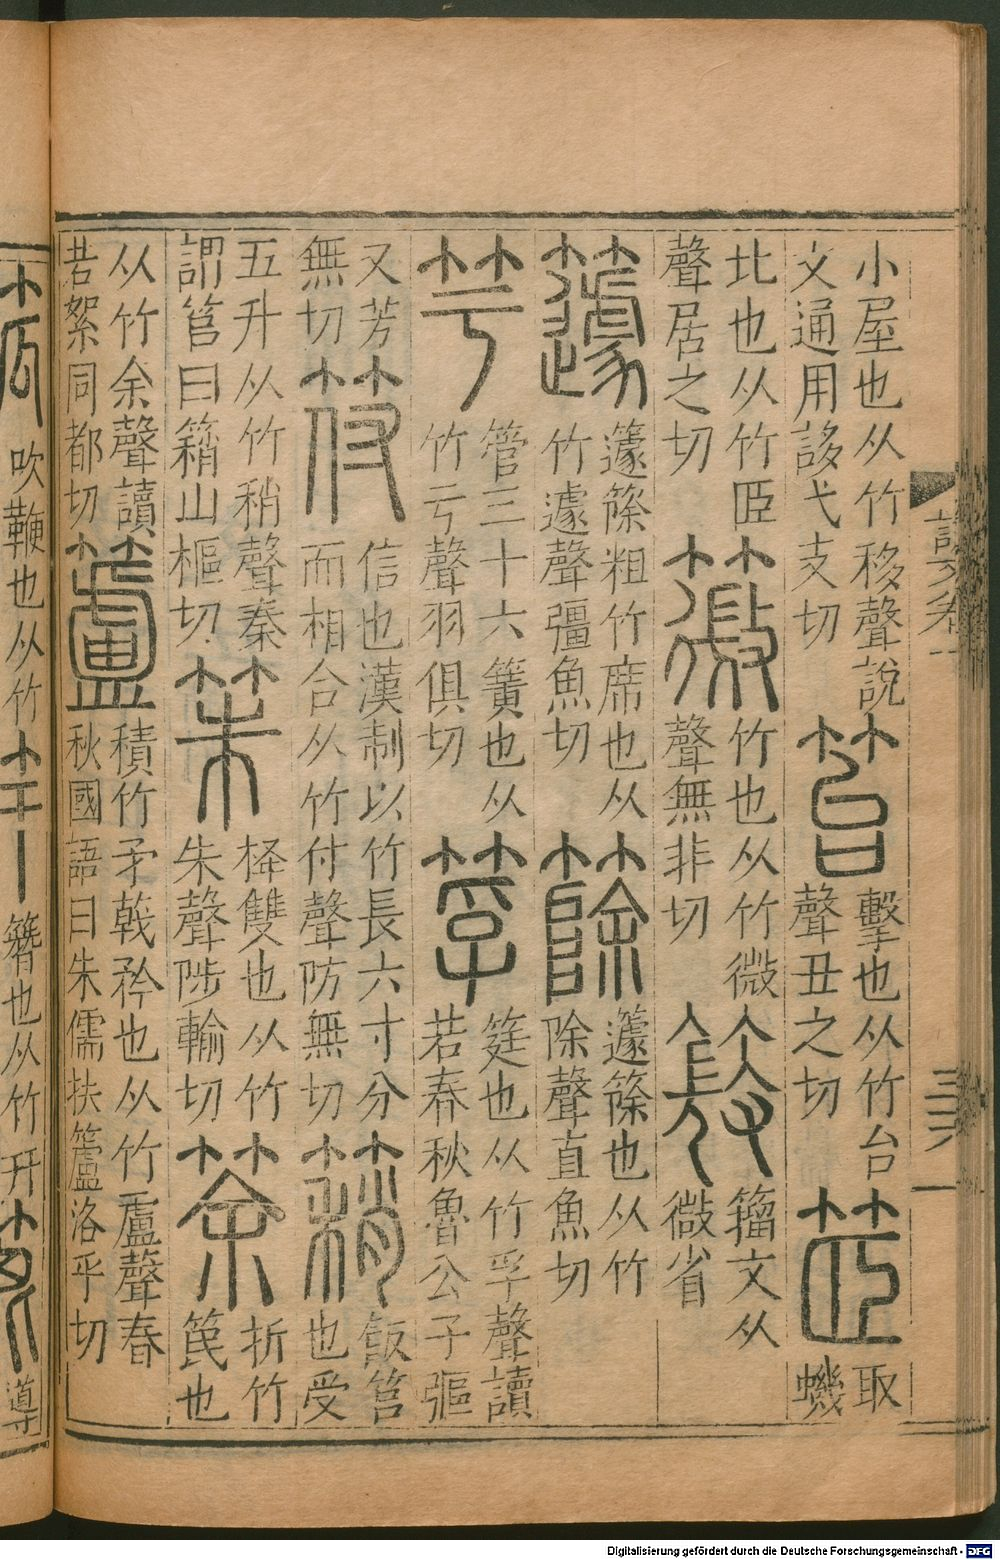 小屋也从竹移聲說
文通用誃弋支切
笞
擊也从竹台
聲丑之切
取
蟣
北也从竹臣
聲居之切
竹也从竹微
聲無非切
籀文从
微省
籧
籧篨粗竹席也从
竹遽聲彊魚切
篨
籧篨也从竹
除聲直魚切
竽
管三十六簧也从
竹亏聲羽俱切
筟
筳也从竹孚聲讀
若春秋魯公子彄
又芳
無切
符
信也漢制以竹長六寸分
而相合从竹付聲防無切
䈰
飯筥
也受
五升从竹稍聲秦
謂筥曰䈰山樞切
栙雙也从竹
朱聲陟輸切
筡
折竹
笢也
从竹余聲讀
若絮同都切
籚
積竹矛戟矜也从竹盧聲春
秋國語曰朱儒扶籚洛乎切
吹鞭也从竹
簪也从竹幵
導
Digitalisierung gefördert durch die Deutsche Forschungsgemeinschaft - DFG